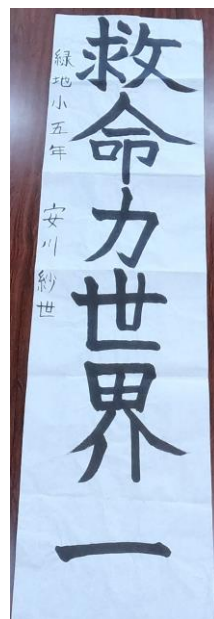 救命力世界一
緑地小五年 安川紗世